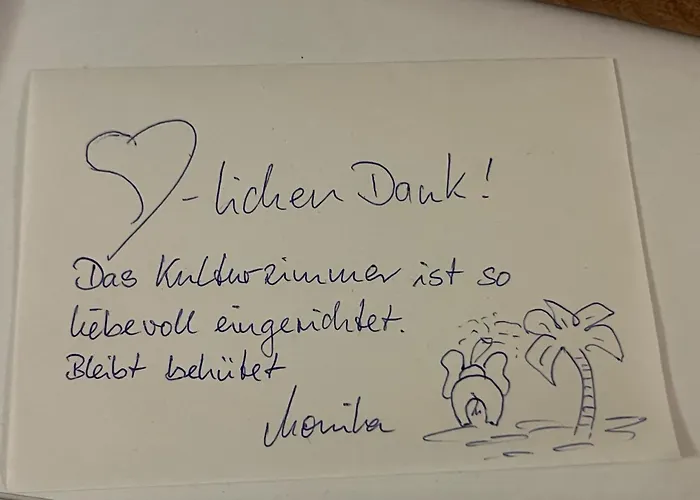 ♡-lichen Dank!
Das Kulturzimmer ist so
liebevoll eingerichtet.
Bleibt behütet
Monika